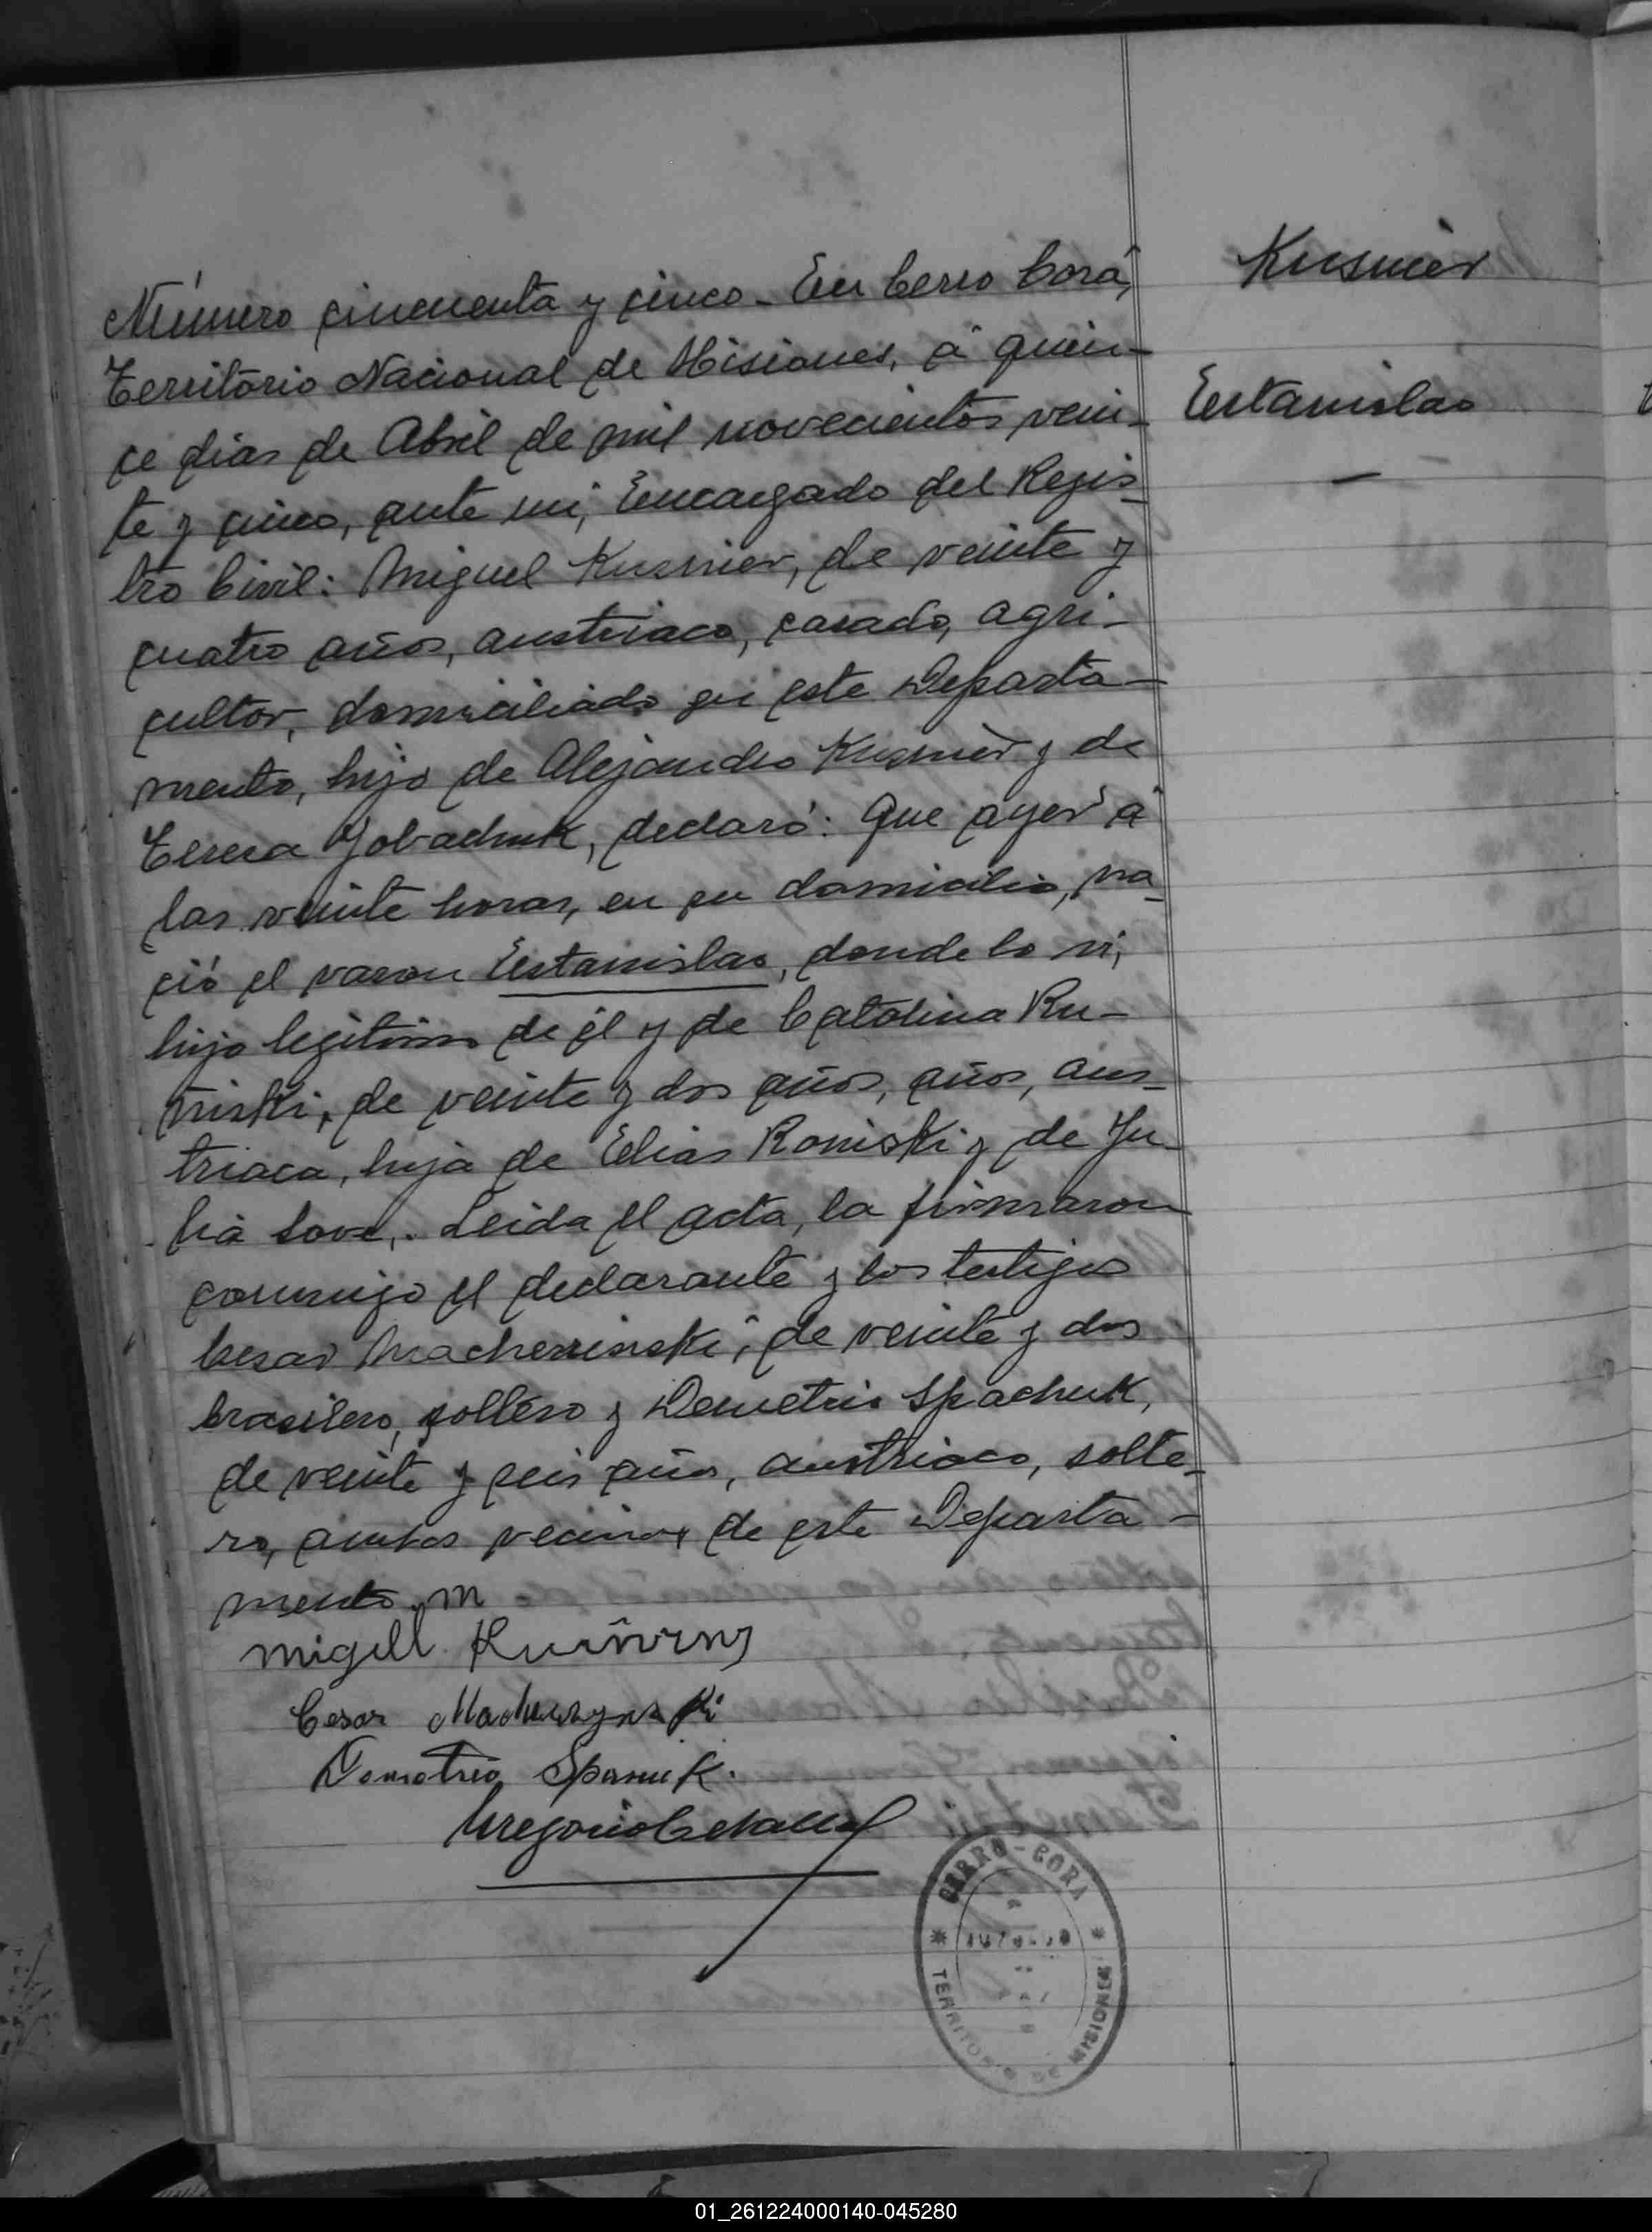 Kusnier
Estanislao
Número cincuenta y cinco - En Cerro Corá,
Territorio Nacional de Misiones, á quin-
ce dias de Abril de mil novecientos vein-
te y cinco, ante mi, Encargado del Regis-
tro Civil: Miguel Kusnier, de veinte y
cuatro años, austriaco, casado, agri-
cultor, domiciliado en este Departa-
mento, hijo de Alejandro Kusnier y de
Teresa Yobachuk, declaró: Que ayer á
las veinte horas, en su domicilio, na-
ció el varon Estanislao, donde lo vi,
hijo legitimo de él y de Catalina Ru-
niski, de veinte y dos años, años, aus-
triaca, hija de Elias Roniski y de Ju-
lia Sove,. Leida el acta, la firmaron
conmigo el declarante y los testigos
Cesar Macherinski, de veinte y dos
brasilero, soltero y Demetrio Spachuk,
de veinte y seis años, austriaco, solte-
ro, ambos vecinos de este Departa-
mento. m
Migell
Cesar
Demetrio Spasuk.
Gregorio
CERRO-CORA
TERRITORIO DE MISIONES
01_261224000140-045280